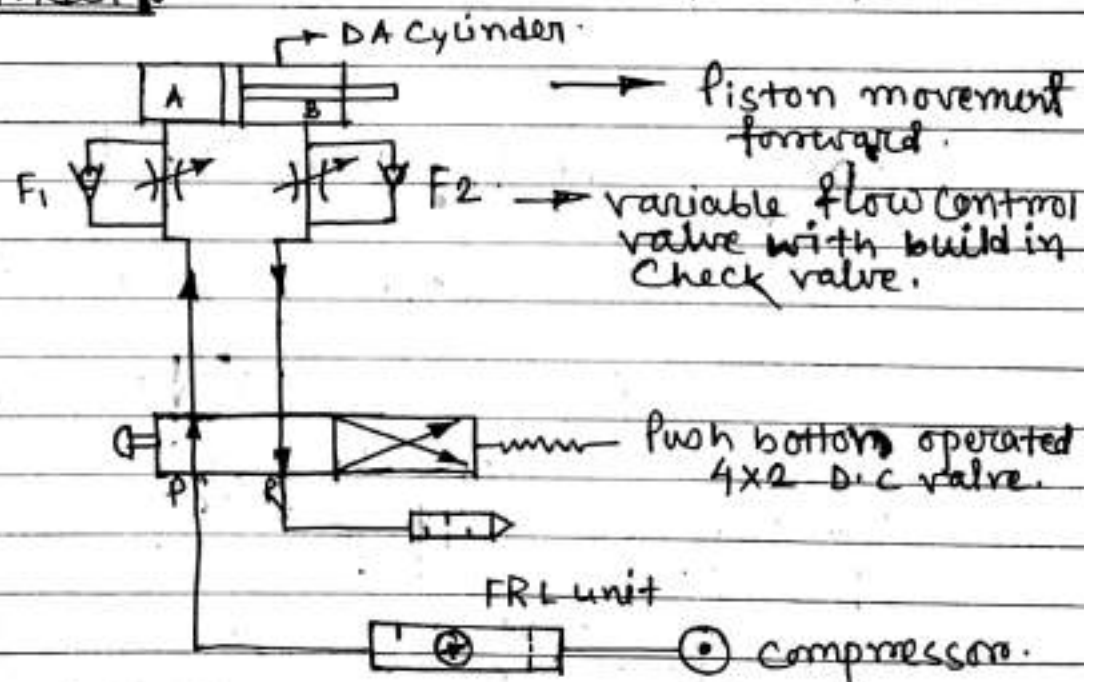 DA Cylinder.
A
B
Piston movement
forward.
F1
F2
variable flow control
valve with build in
Check valve.
Push bottom operated
4×2 D.C valve.
P
R
FRL unit
compressor.